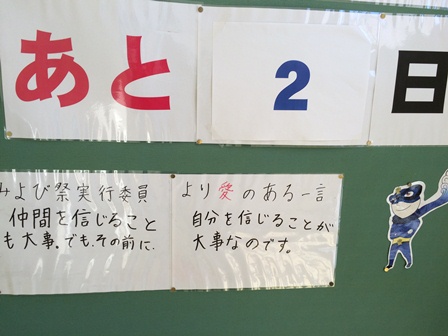 あと2日
みよび祭実行委員
より愛のある一言
仲間を信じること
も大事。でも、その前に、
自分を信じることが
大事なのです。